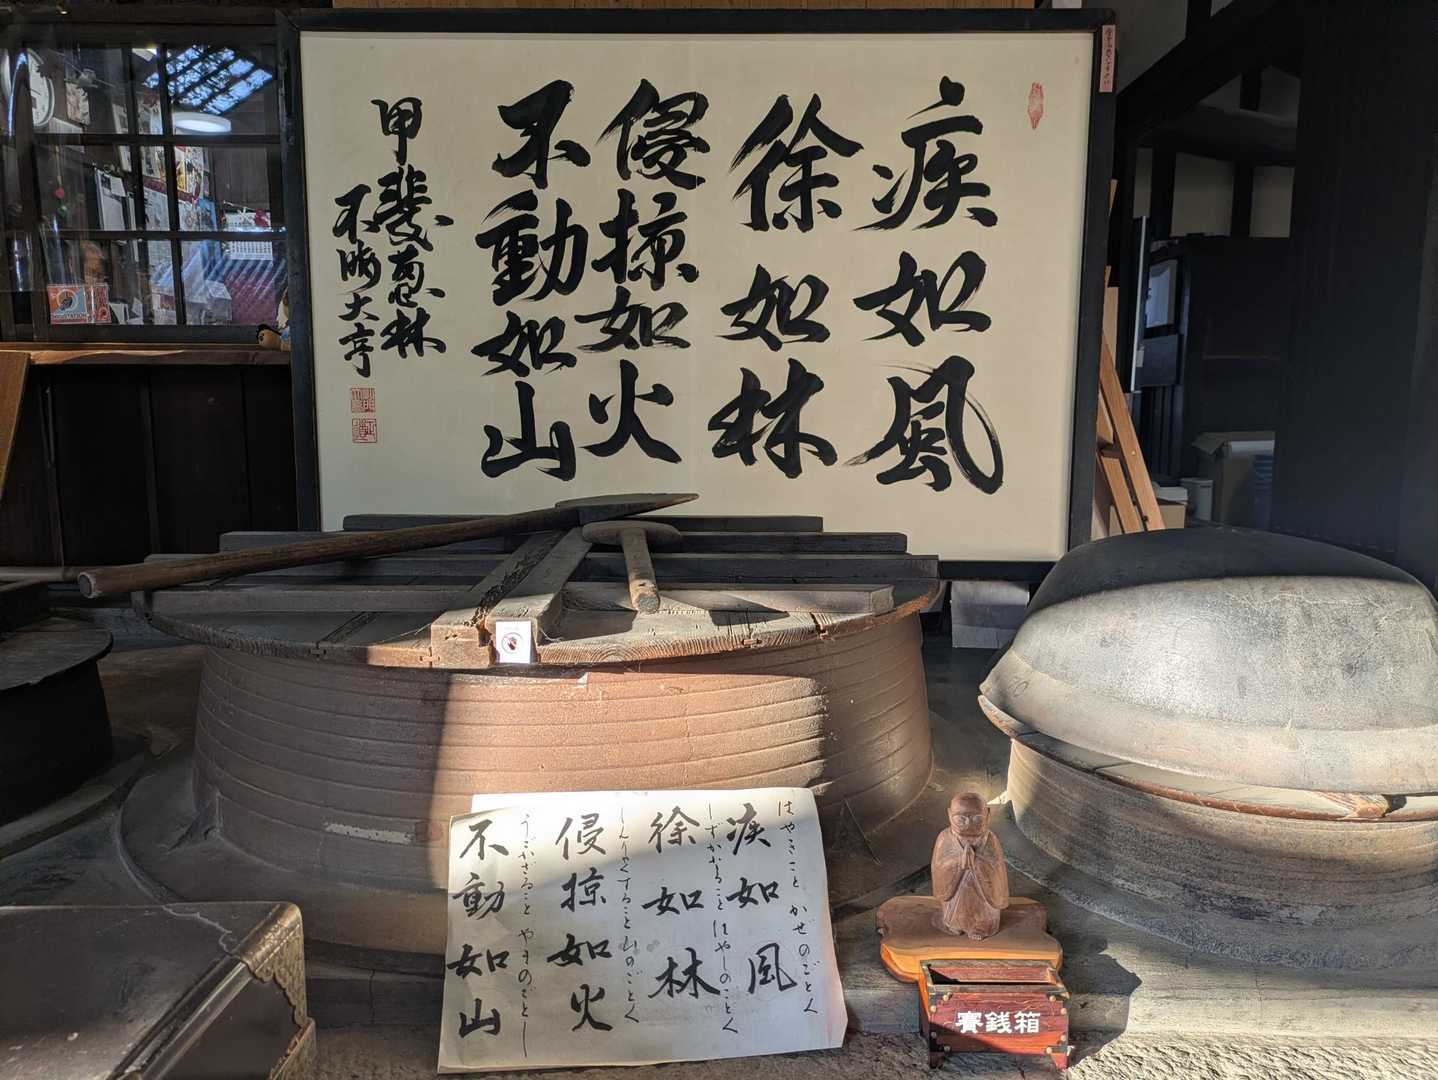 疾如風
徐如林
侵掠如火
不動如山
甲斐惠林
不濡大亨
はやきこと かぜのごとく
疾如風
しずかなること はやしのごとく
徐如林
しんりゃくすること 火のごとく
侵掠如火
うごかざること やまのごとし
不動如山
賽銭箱